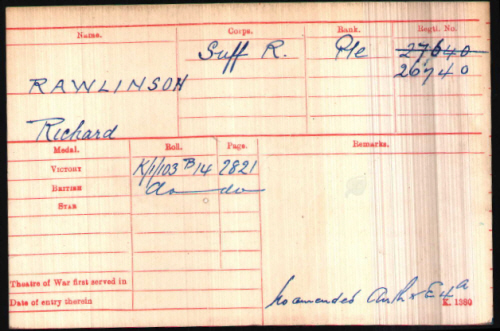 Name. Corps. Rank. Regtl. No.
Suff R. Pte 27640
RAWLINSON 26740
Richard
Medal. Roll. Page. Remarks.
VICTORY K/1/103 B14 2821
BRITISH do do
STAR
Theatre of War first served in
Date of entry therein
No amended Auth E4A
K. 1380